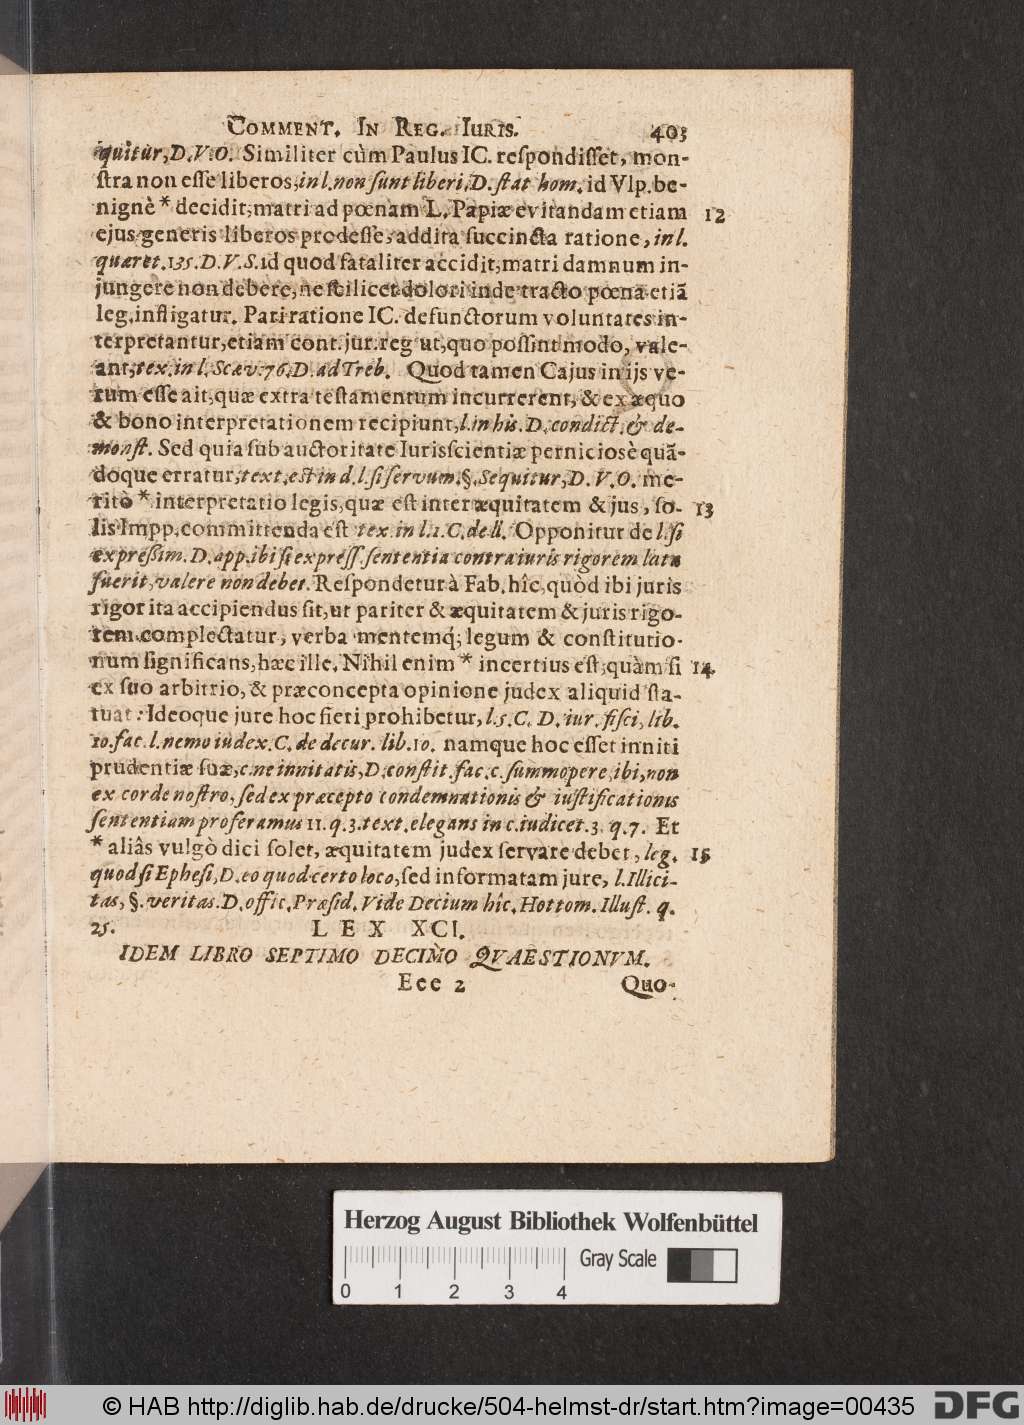 COMMENT. IN REG. IURIS. 403
quitur, D. V. O. Similiter cùm Paulus IC. respondisset, mon-
stra non esse liberos, in l. non sunt liberi, D. stat hom. id Vlp. be-
nignè * decidit, matri ad pœnam L. Papiæ evitandam etiam 12
ejus generis liberos prodesse, addita succincta ratione, in l.
quæret. 135. D. V. S. id quod fataliter accidit, matri damnum in-
jungere non debere, ne scilicet dolori inde tracto pœnā etiā
leg. infligatur. Pari ratione IC. defunctorum voluntates in-
terpretantur, etiam cont. jur. reg ut, quo possint modo, vale-
ant, tex. in l. Scæv. 76. D. ad Treb. Quod tamen Cajus in ijs ve-
rum esse ait, quæ extra testamentum incurrerent, & ex æquo
& bono interpretationem recipiunt, l. in his. D. condict. & de-
monst. Sed quia sub auctoritate Iurisscientiæ perniciosè quā-
doque erratur, text. est in d. l. si servum. §. Sequitur, D. V. O. me-
ritò * interpretatio legis, quæ est inter æquitatem & jus, so- 13
lis Impp. committenda est tex. in l. 1. C. de ll. Opponitur de l. si
expressim. D. app. ibi si express. sententia contra iuris rigorem lata
fuerit, valere non debet. Respondetur à Fab. hîc, quòd ibi juris
rigor ita accipiendus sit, ut pariter & æquitatem & juris rigo-
rem complectatur, verba mentemq; legum & constitutio-
num significans, hæc ille. Nihil enim * incertius est, quàm si 14
ex suo arbitrio, & præconcepta opinione judex aliquid sta-
tuat: Ideoque jure hoc fieri prohibetur, l. 5. C. D. iur. fisci, lib.
10. fac. l. nemo iudex. C. de decur. lib. 10. namque hoc esset inniti
prudentiæ suæ, c. ne innitatis, D. constit. fac. c. summopere, ibi, non
ex corde nostro, sed ex præcepto condemnationis & iustificationis
sententiam proferamus 11. q. 3. text. elegans in c. iudicet. 3. q. 7. Et
* aliâs vulgò dici solet, æquitatem judex servare debet, leg. 15
quod si Ephesi, D. eo quod certo loco, sed informatam jure, l. Illici-
tas, §. veritas. D. offic. Præsid. Vide Decium hîc. Hottom. Illust. q.
25. LEX XCI.
IDEM LIBRO SEPTIMO DECIMO QVAESTIONVM.
Eee 2 Quo-
Herzog August Bibliothek Wolfenbüttel
Gray Scale
0 1 2 3 4
© HAB http://diglib.hab.de/drucke/504-helmst-dr/start.htm?image=00435 DFG